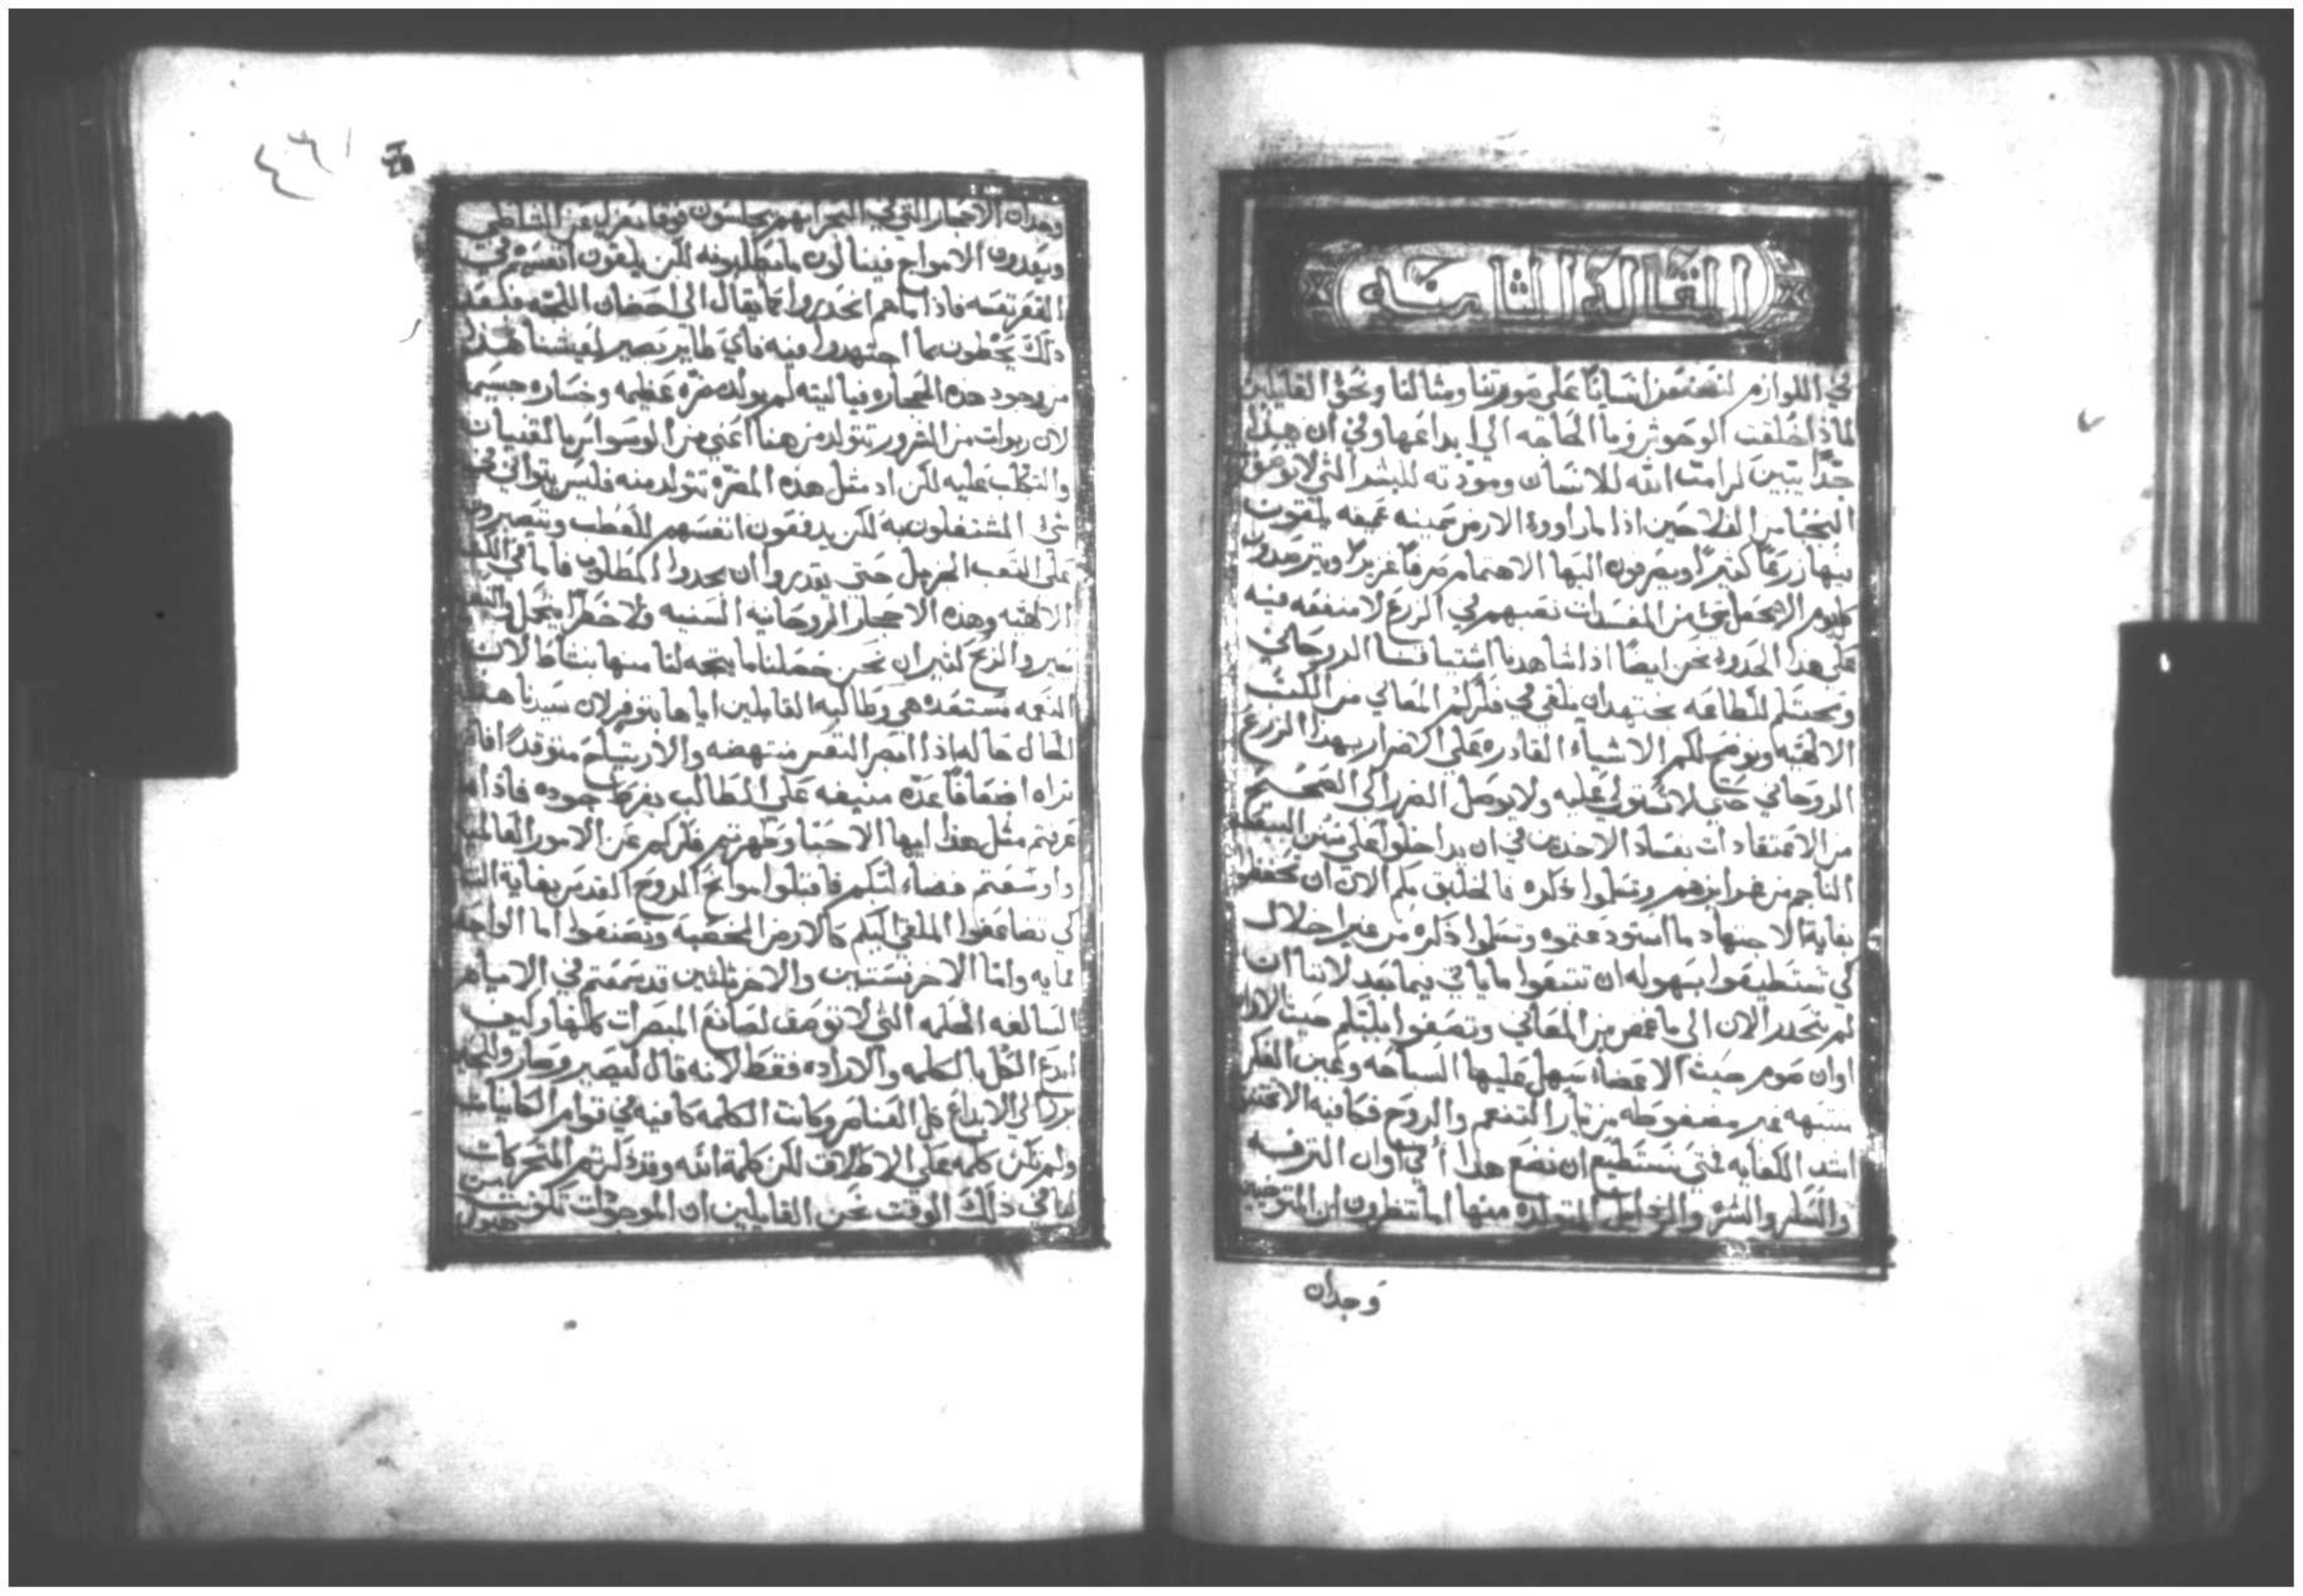 المقاله الثامنه
في اللوازم لنصنعن انسانًا علي صورتنا ومثالنا ونحو القايلين
لماذا خلقت الوحوش وما الحاجه الي ابداعها وفي ان هذا
جدًا يتبين كرامت الله للانسان ومودته للبشر التي لا توصف
النجبا من الفلاحين اذا ما راوا الارض سمينه عميقه يلقون
فيها زرعًا كثيرًا ويصرفون اليها الاهتمام صرفًا غزيرًا ويترصدون
كل يوم الا يجعل شي من المفسدات تعبهم في الزرع لا منفعه فيه
علي هذا الحدو نحن ايضًا اذا شاهدنا اشتياقنا الروحاني
ونحبتكم للطاعه نجتهد ان نلقي في فكركم المعاني من الكتب
الالهيه ونوضح لكم الاشياء القادره علي الاضرار بهذا الزرع
الروحاني حتي لا تستولي عليه ولا يوصل الضرر الي الصحيح
من الاعتقادات بفساد الاخذين في ان يداخلوا علي سنن البيعه
الناجم من ضمرايرهم وتسلموا ذكره فالخليق بكم الان ان تحفظوا
بغاية الاجتهاد ما استودعتموه وتسلموا ذكره من غير اخلال
كي تستطيعوا بسهوله ان تتبعوا ما ياتي فيما بعد لاننا ان
لم ننحدر الان الي ما غمض من المعاني وتصغوا بلبكم حيث الاوان
اوان صوم حيث الاعضا سهل عليها السباحه وعين الفكر
منتبهه غير مضغوطه من تيار التنعم والروح فكافيه الا تختنق
اشد الكفايه فمتي نستطيع ان نصنع هذا أفي اوان الترفه
والسكر والشره والرذايل المتولده منها اما تنظرون ان المتوخيين
وجدان
وجدان الاحجار التي في البحر انهم يجلسون فوقا بمعزل عن الشاطي
ويعدون الامواج فينالون ما يطلبونه لكن يلقون انفسهم في
القعر نفسه فاذا ما هم انحدروا كما يقال الي احضان اللجه فبعد
ذلك يحظون بما اجتهدوا فيه فاي طايل يصير لعيشنا هذا
من وجود هذه الحجاره فيا ليته لم يولد مضره عظيمه وخساره جسيمه
لان ربوات من الشرور تتولد من هنا اعني من الوسواس بالقنيان
والتكلب عليه لكن اذ مثل هذه المضره تتولد منه فليس يتواني في
شي المشتغلون به لكن يدفعون انفسهم للعطب ويتصبرون
علي التعب الجزيل حتي يقدروا ان يجدوا المطلوب فاما في الكتب
الالهيه وهذه الاحجار الروحانيه السنيه ولا خطر يتخيل والتعب
يسير والربح كثير ان نحن حصلنا ما يتجه لنا منها بنشاط لان
النعمه مستعده هي وطالبه القابلين اياها بتوفر لان سيدنا هذه
الحال حاله اذا ابصر النفس منتهضه والارتياح متوقدًا افاد
ثراه اضعافًا عدة منيفه علي الطالب بفرط جوده فاذا ما
عرفتم مثل هذا ايها الاحبا وطهرتم فكركم عن الامور العالميه
واوسعتم فضاء لبكم فاقبلوا مواهب الروح القدس بغاية النشاط
كي تضاعفوا الملقي اليكم كالارض المخصبه وتصنعوا اما الواحد
مايه واما الاخر ستين والاخر ثلثين قد سمعتم في الايام
السالفه الحكمه التي لا توصف لصانع المبصرات كلها وكيف
ابدع الكل بالكلمه والاراده فقط لانه قال ليصير وصار وللحين
برز الي الابداع كل العناصر وكانت الكلمه كافيه في قوام الكاينات
ولم تكن كلمه علي الاطلاق لكن كلمة الله وقد ذكرتم المتحركات
لنا في ذلك الوقت نحن القايلين ان الموجودات تكونت من
هيولي